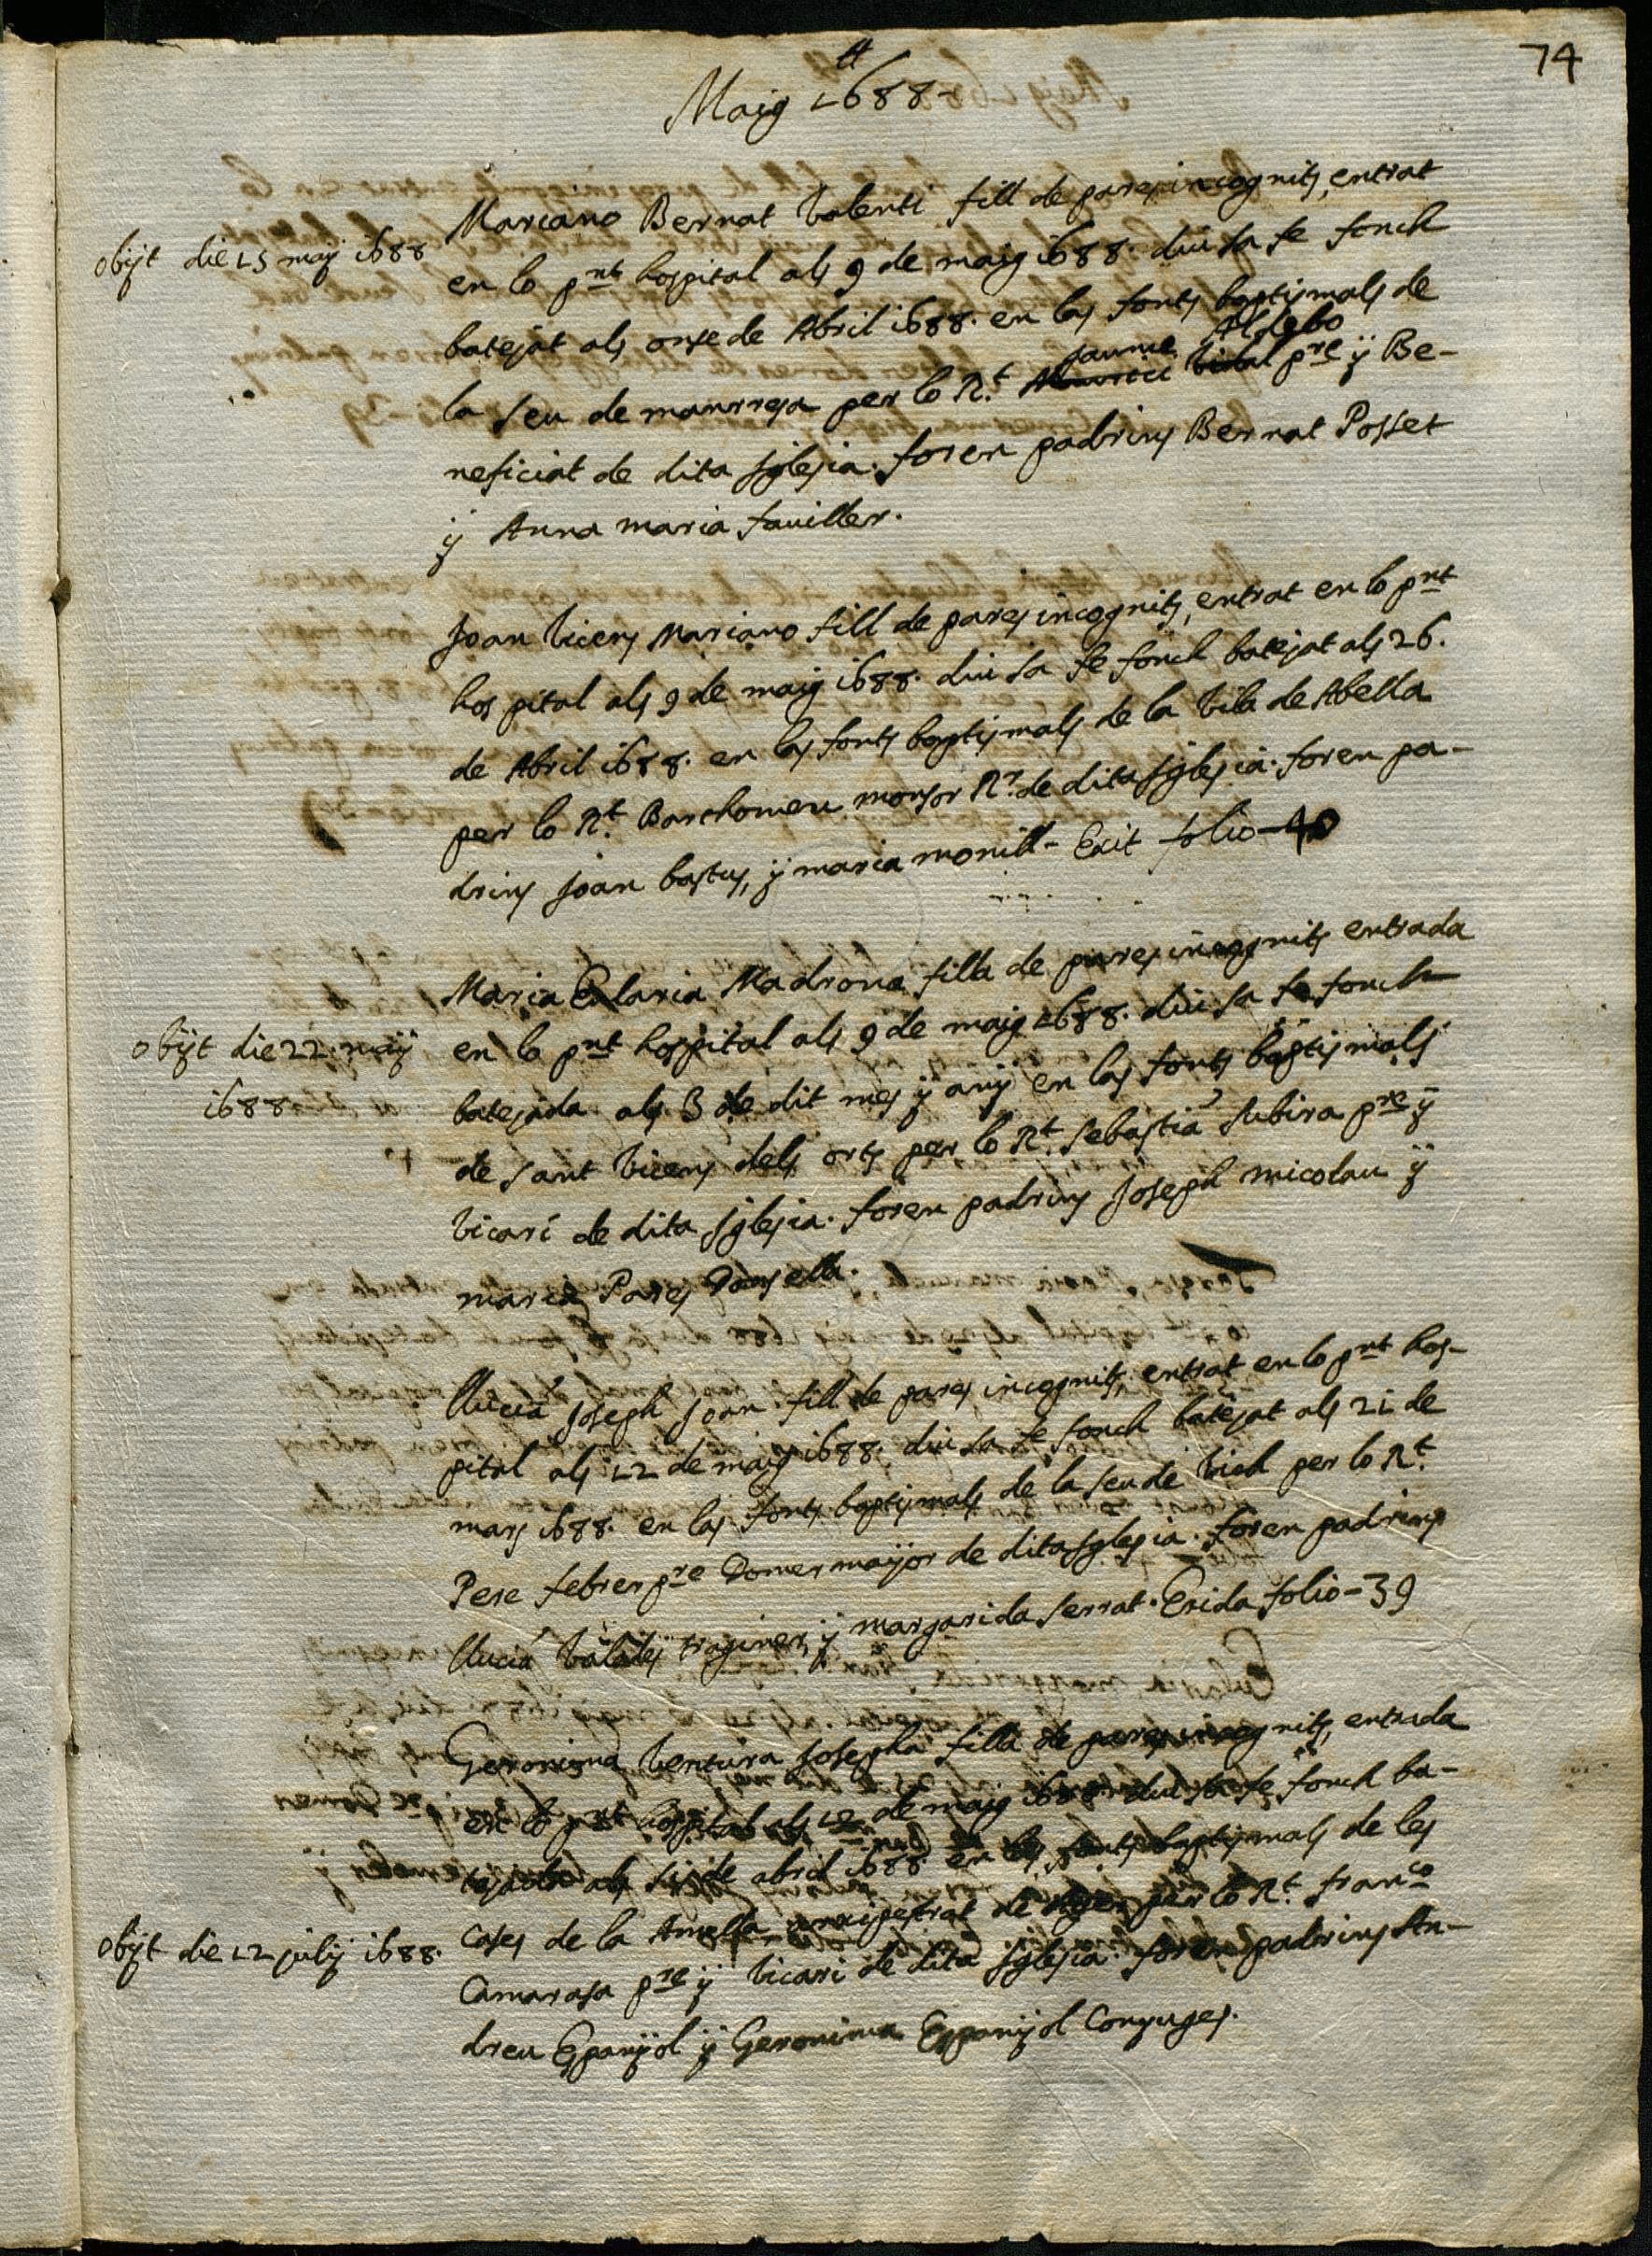 74
Maig 1688-
Mariano Bernat Valenti fill de pares incognits, entrat
obijt die 15 maij 1688
en lo pnt hospital als 9 de maig 1688. diu sa fe fonch
batejat als onse de Abril 1688. en las fonts baptismals de
Jaume
la seu de manrresa per lo Rt. pre ÿ Be-
neficiat de dita Iglesia. foren padrins Bernat Posset
ÿ Anna maria fauiller.
Joan Vicens Mariano fill de pares incognits, entrat en lo pnt
hospital als 9 de maig 1688. diu sa fe fonch batejat als 26.
de Abril 1688. en las fonts baptismals de la Vila de Abella
per lo Rt. Barthomeu monsor Rr. de dita Iglesia. foren pa-
drins Joan bastus, ÿ maria monill- Exit folio-40
Maria Eularia Madrona filla de pares incognits entrada
en lo pnt hospital als 9 de maig 1688. diu sa fe fonch
obijt die 22 maij
1688
batejada als 3 de dit mes ÿ anÿ en las fonts baptismals
de sant Vicens dels orts per lo Rt. Sebastia Subira pre ÿ
Vicari de dita Iglesia. foren padrins Joseph micolau ÿ
maria Pares Donsella.
Llucià Joseph Joan fill de pares incognits, entrat en lo pnt hos-
pital als 12 de maig 1688. diu sa fe fonch batejat als 21 de
mars 1688. en las fonts baptismals de la seu de Vich per lo Rt.
Pere febrer pre Domer maÿor de dita Iglesia. foren padrins
Llucià traginer, ÿ margarida serrat. Exida folio-39
Geronima Ventura Josepha filla de pares incognits, entrada
en lo pnt hospital als 12 de maig 1688. diu sa fe fonch ba-
tejada als de abril 1688. en las fonts baptismals de les
Cases de la Amella arxipestrat de Ager per lo Rt. franco
obijt die 12 julij 1688.
Camarasa pre ÿ Vicari de dita Iglesia. foren padrins An-
dreu Espanÿol ÿ Geronima Espanÿol Conyuges.